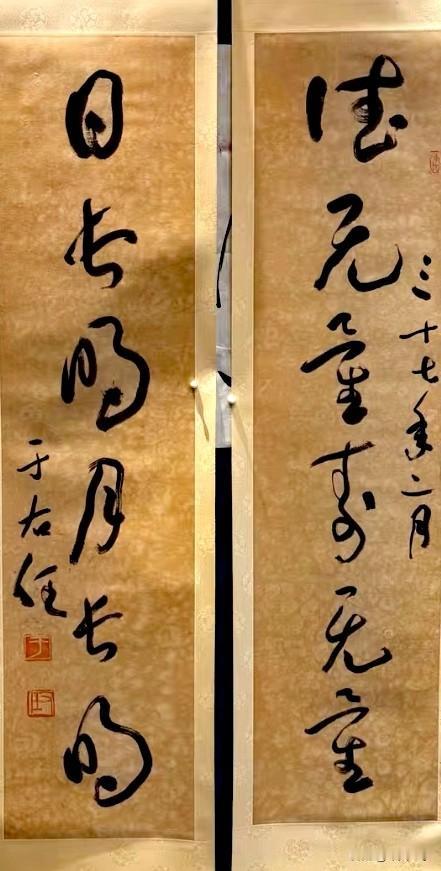 三十七年二月
德无量寿无量
日长明月长明
于右任